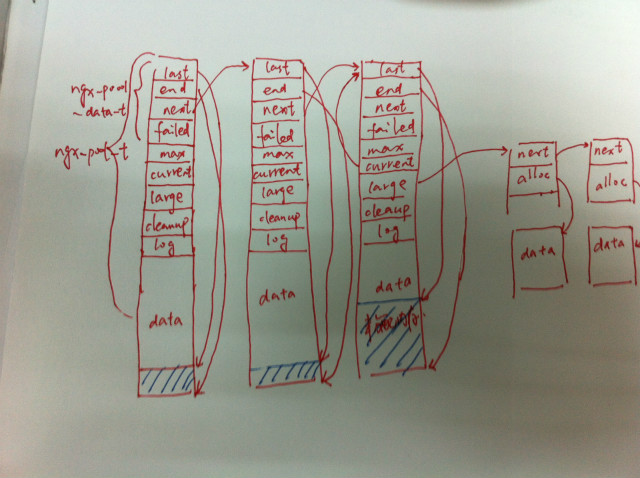 ngx-pool
-data-t
ngx-pool-t
last
end
next
failed
max
current
large
cleanup
log
data
last
end
next
failed
max
current
large
cleanup
log
data
last
end
next
failed
max
current
large
cleanup
log
data
next
alloc
data
next
alloc
data